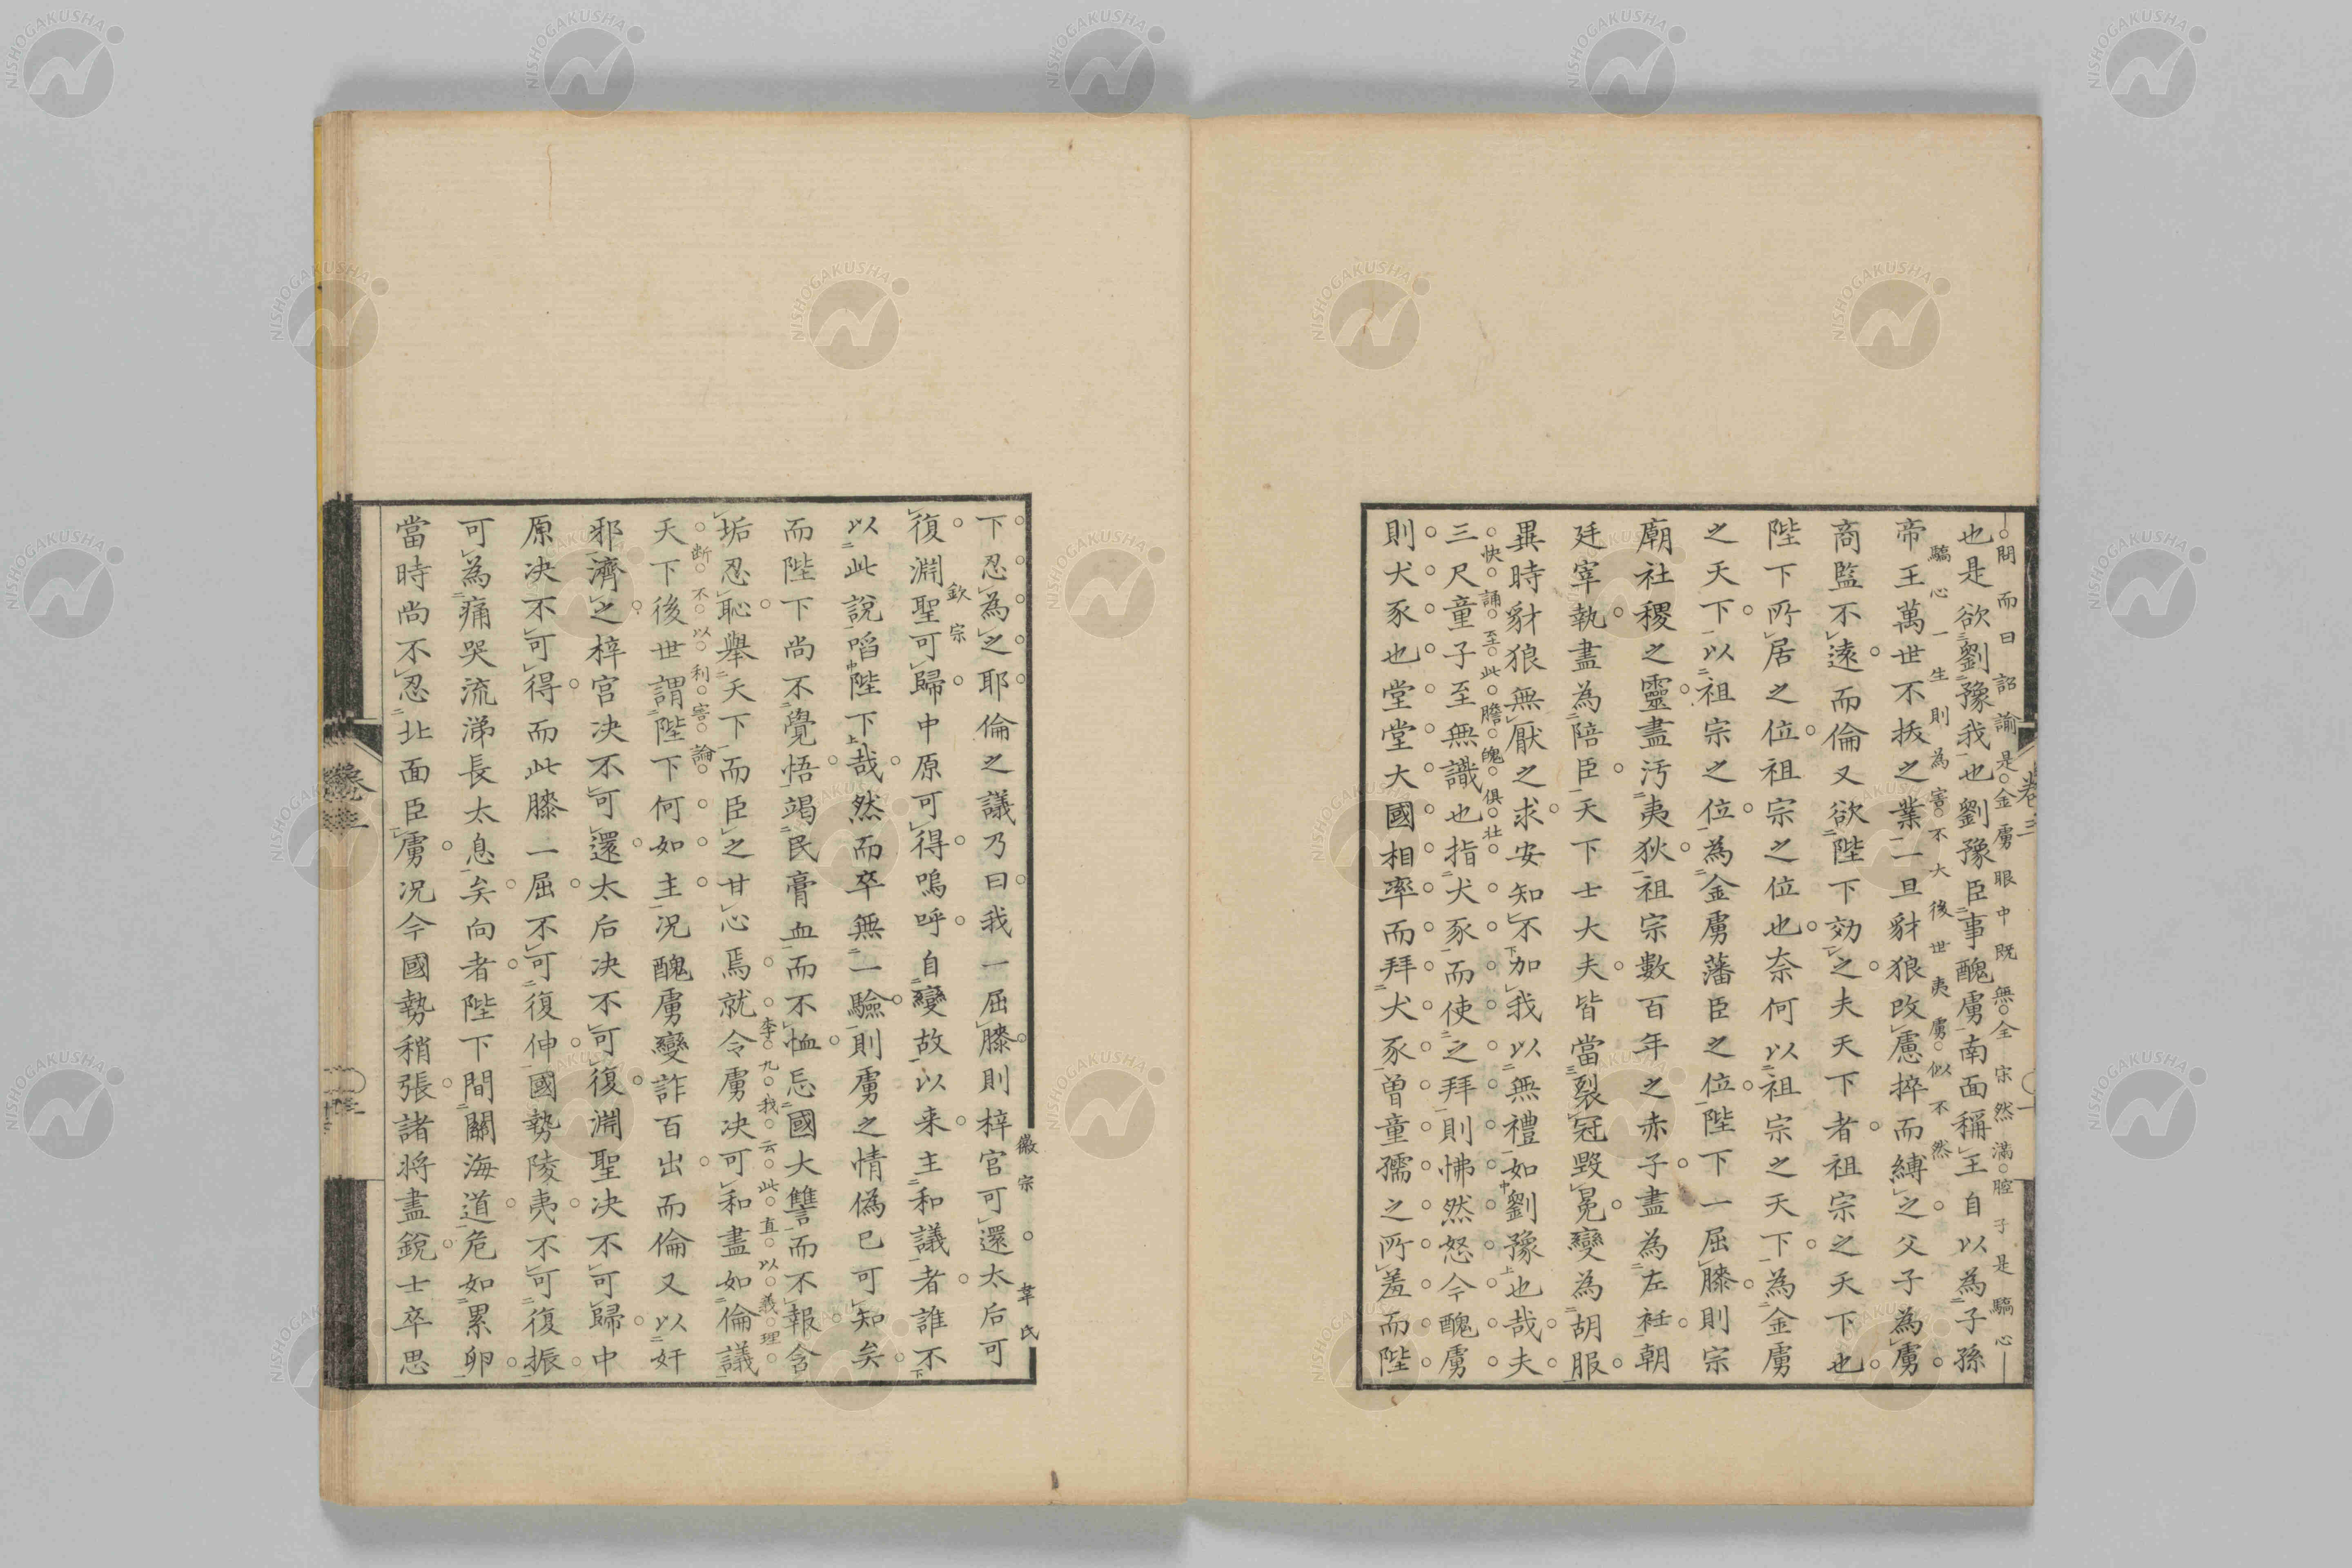 也是欲劉豫我也劉豫臣事醜虜南面稱王自以為子孫
帝王萬世不拔之業一旦豺狼改慮捽而縛之父子為虜
商監不遠而倫又欲陛下効之夫天下者祖宗之天下也
陛下所居之位祖宗之位也奈何以祖宗之天下為金虜
之天下以祖宗之位為金虜藩臣之位陛下一屈膝則宗
廟社稷之靈盡汚夷狄祖宗數百年之赤子盡為左衽朝
廷宰執盡為陪臣天下士大夫皆當裂冠毀冕變為胡服
異時豺狼無厭之求安知不加我以無禮如劉豫也哉夫
三尺童子至無識也指犬豕而使之拜則怫然怒今醜虜
則犬豕也堂堂大國相率而拜犬豕曾童孺之所羞而陛
間而曰詔諭是金虜眼中既無全宋然滿腔子是驕心
驕心一生則為害不大後世夷虜似不然
快誦至此膽魄俱壯
卷三
下忍為之耶倫之議乃曰我一屈膝則梓宮可還太后可
復淵聖可歸中原可得嗚呼自變故以来主和議者誰不
以此說啗陛下哉然而卒無一驗則虜之情偽已可知矣
而陛下尚不覺悟竭民膏血而不恤忘國大讐而不報含
垢忍恥舉天下而臣之甘心焉就令虜决可和盡如倫議
天下後世謂陛下何如主況醜虜變詐百出而倫又以奸
邪濟之梓宮决不可還太后决不可復淵聖决不可歸中
原决不可得而此膝一屈不可復伸國勢陵夷不可復振
可為痛哭流涕長太息矣向者陛下間關海道危如累卵
當時尚不忍北面臣虜况今國勢稍張諸將盡銳士卒思
徽宗
韋氏
欽宗
李九我云此直以義理
断不以利害論